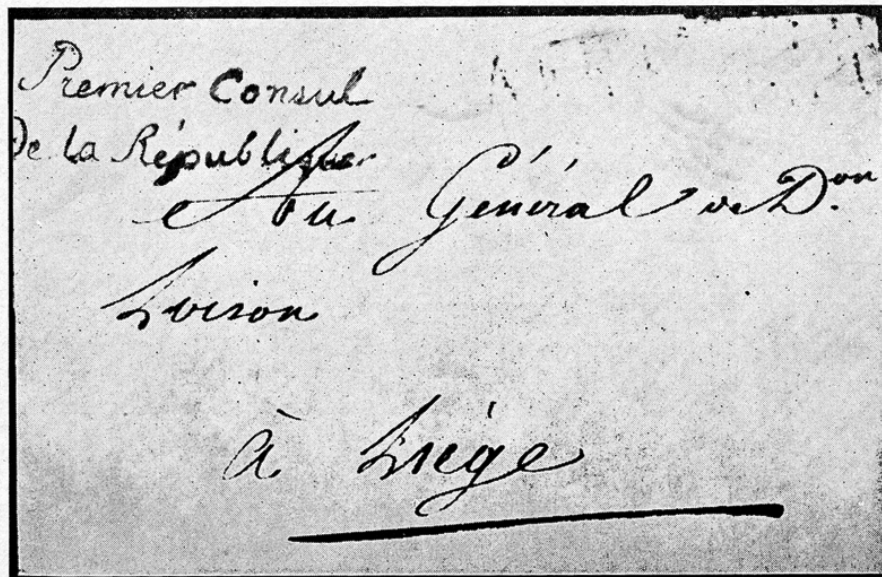 Premier Consul
De la République
Au Général de D.on
Loison
à Liége